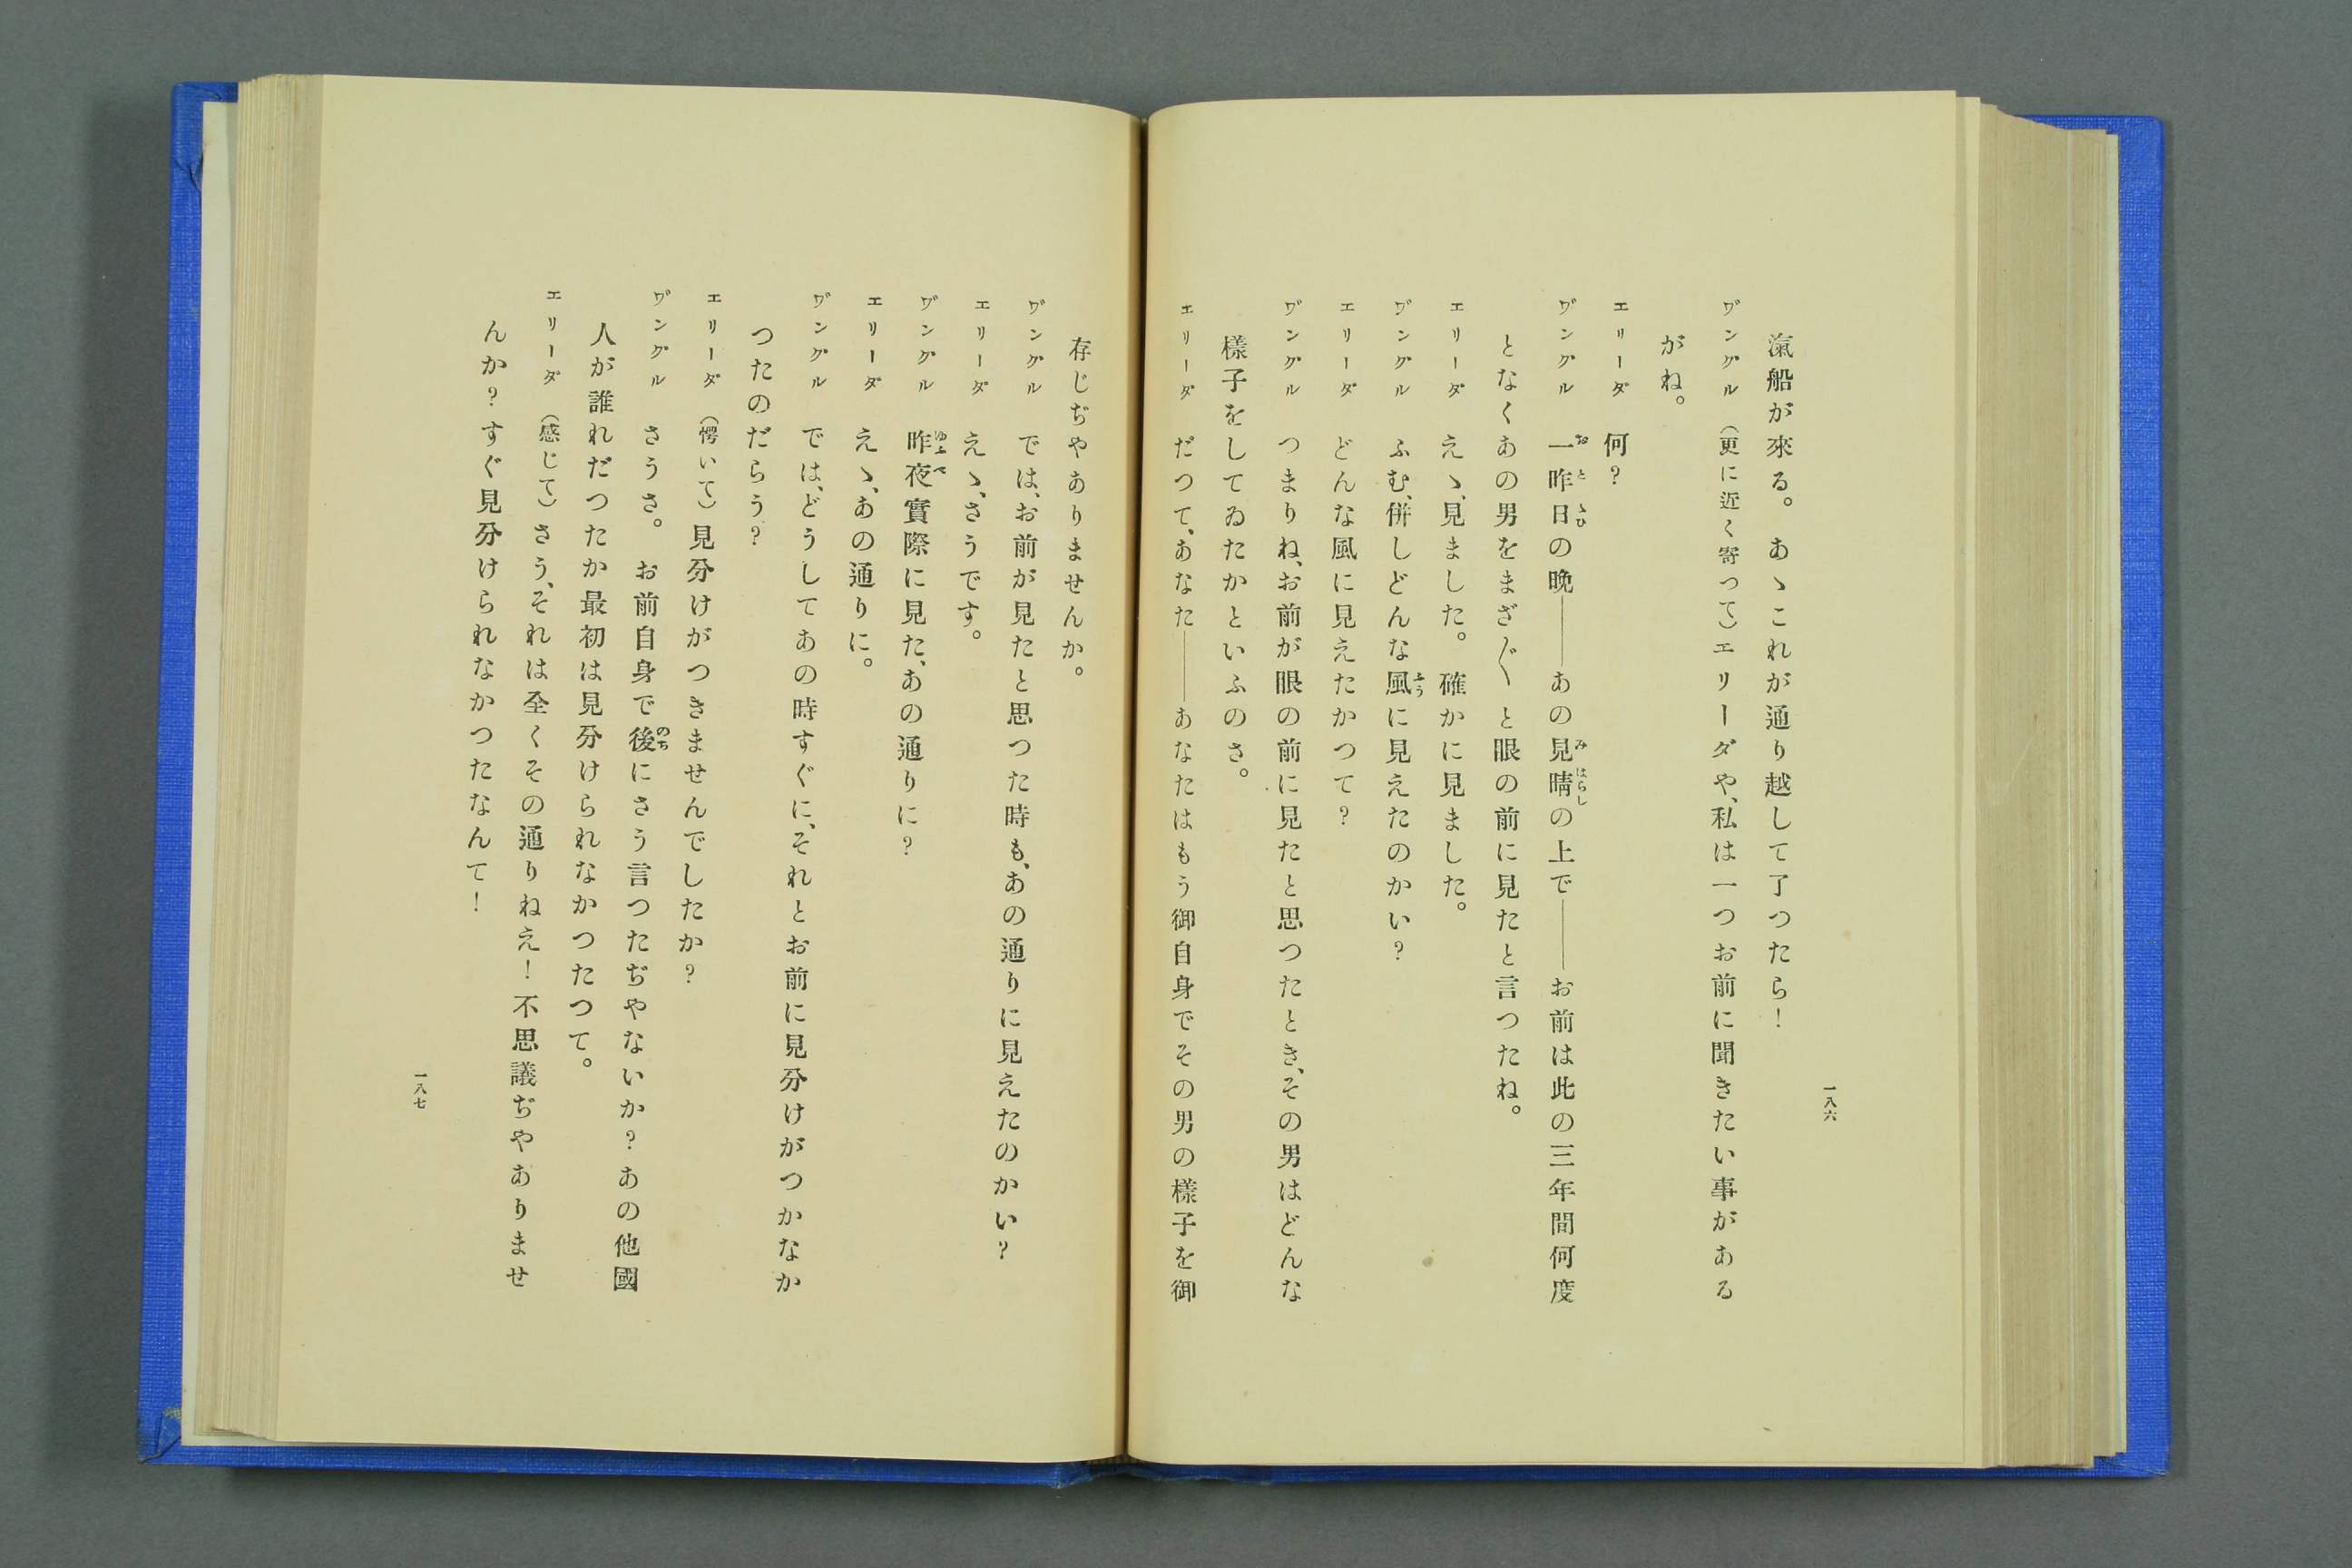 一八六
滊船が來る。　あゝこれが通り越して了つたら！
ワ゛ングル　（更に近く寄つて）エリーダや、私は一つお前に聞きたい事がある
がね。
エリーダ　何？
ワ゛ングル　一昨日の晩――あの見晴の上で――お前は此の三年間何度
となくあの男をまざ〴〵と眼の前に見たと言つたね。
エリーダ　えゝ、見ました。　確かに見ました。
ワ゛ングル　ふむ、併しどんな風に見えたのかい？
エリーダ　どんな風に見えたかつて？
ワ゛ングル　つまりね、お前が眼の前に見たと思つたとき、その男はどんな
樣子をしてゐたかといふのさ。
エリーダ　だつて、あなた――あなたはもう御自身でその男の樣子を御
存じぢやありませんか。
ワ゛ングル　では、お前が見たと思つた時も、あの通りに見えたのかい？
エリーダ　えゝ、さうです。
ワ゛ングル　昨夜實際に見た、あの通りに？
エリーダ　えゝ、あの通りに。
ワ゛ングル　では、どうしてあの時すぐに、それとお前に見分けがつかなか
つたのだらう？
エリーダ　（愕いて）見分けがつきませんでしたか？
ワ゛ングル　さうさ。　お前自身で後にさう言つたぢやないか？あの他國
人が誰れだつたか最初は見分けられなかつたつて。
エリーダ　（感じて）さう、それは全くその通りねえ！不思議ぢやありませ
んか？すぐ見分けられなかつたなんて！
一八七